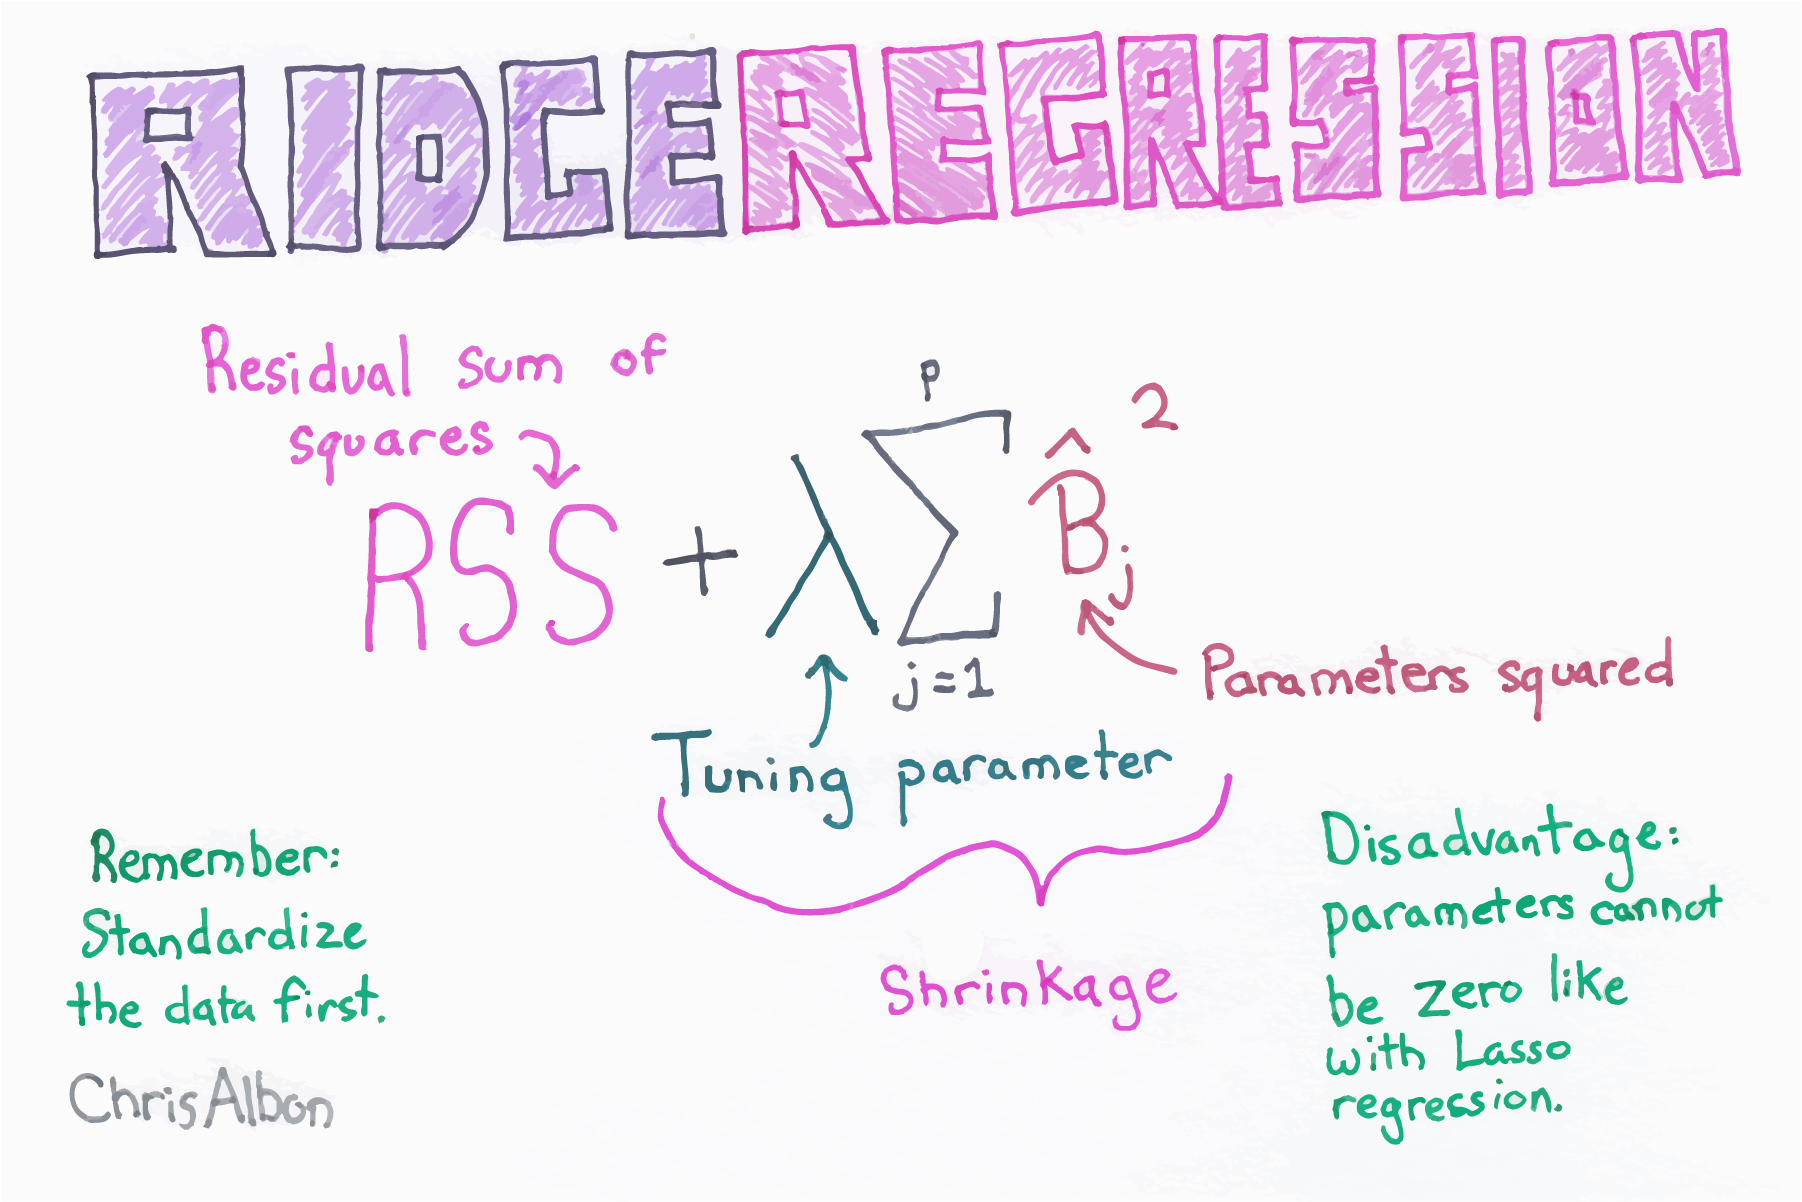 RIDGE REGRESSION
Residual sum of
squares
p
RSS + λ∑ B̂j²
j=1
Parameters squared
Tuning parameter
Shrinkage
Remember:
Standardize
the data first.
Disadvantage:
parameters cannot
be zero like
with Lasso
regression.
ChrisAlbon